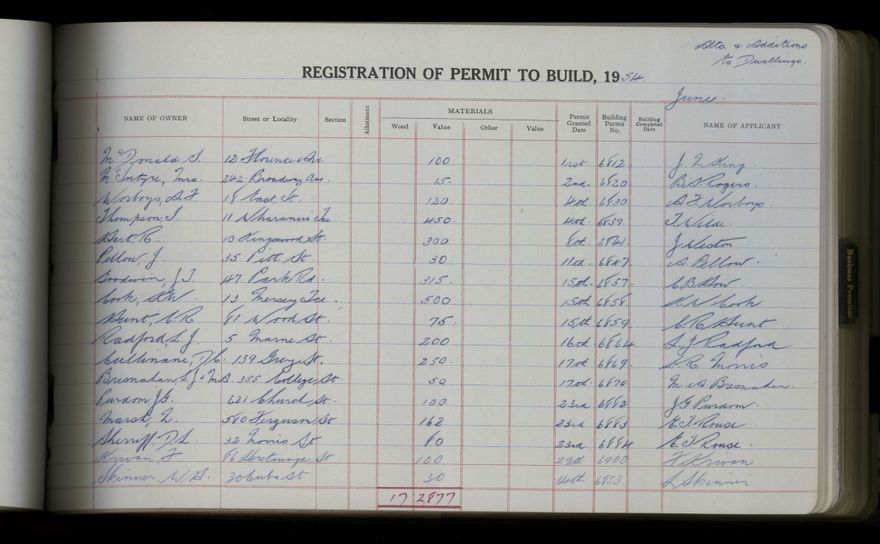 Alts. & Additions
to Dwellings.
REGISTRATION OF PERMIT TO BUILD, 1954
June.
NAME OF OWNER Street or Locality Section Allotment MATERIALS Wood Value Other Value Permit Granted Date Building Permit No. Building Completed Date NAME OF APPLICANT
McDonald S. 12 Florence Ave 100 1st 6812 J. King.
McIntyre, Mrs. 242 Broadway Ave. 15. 2nd. 6820 Rogers.
Worboys, A.F. 18 East St. 120 4th 6830 A.F. Worboys
Thompson, J. 11 Tce 450. 4th. 6839 T. Wilde
Hart, R. 10 Kingswood St. 300 8th. 6841 J Weston
Pellow, J. 35 Pitt St 30 11th. 6847. Pellow.
Goodwin, J.T. 47 Park Rd. 315. 15th. 6857.
Cook, 13 Mersey Tce. 500 15th 6858 Cook
Hunt, C.R. 81 Wood St. 75. 15th 6859 C.R. Hunt
Radford S.J. 5 Marne St. 200 16th 6864 S.J. Radford
Cullinane, D.C. 139 Grey St. 250. 17th 6869. Morris
Bresnahan, 355 College St. 50 17th 6876 Bresnahan.
Purdom J.G. 621 Church St. 100 23rd 6882 J G Purdom.
Marsh, 580 Ferguson St 162 23rd 6883 E.T. Rouse
Sherriff, D.L. 32 Morris St 80 23rd 6884 E T Rouse.
Krivan, F 86 Heretaunga St 100 29th 6900 F Krivan
Skinner. W.G. 30 Cuba St 30 14th 6853 Skinner
17 2877
Business Premises